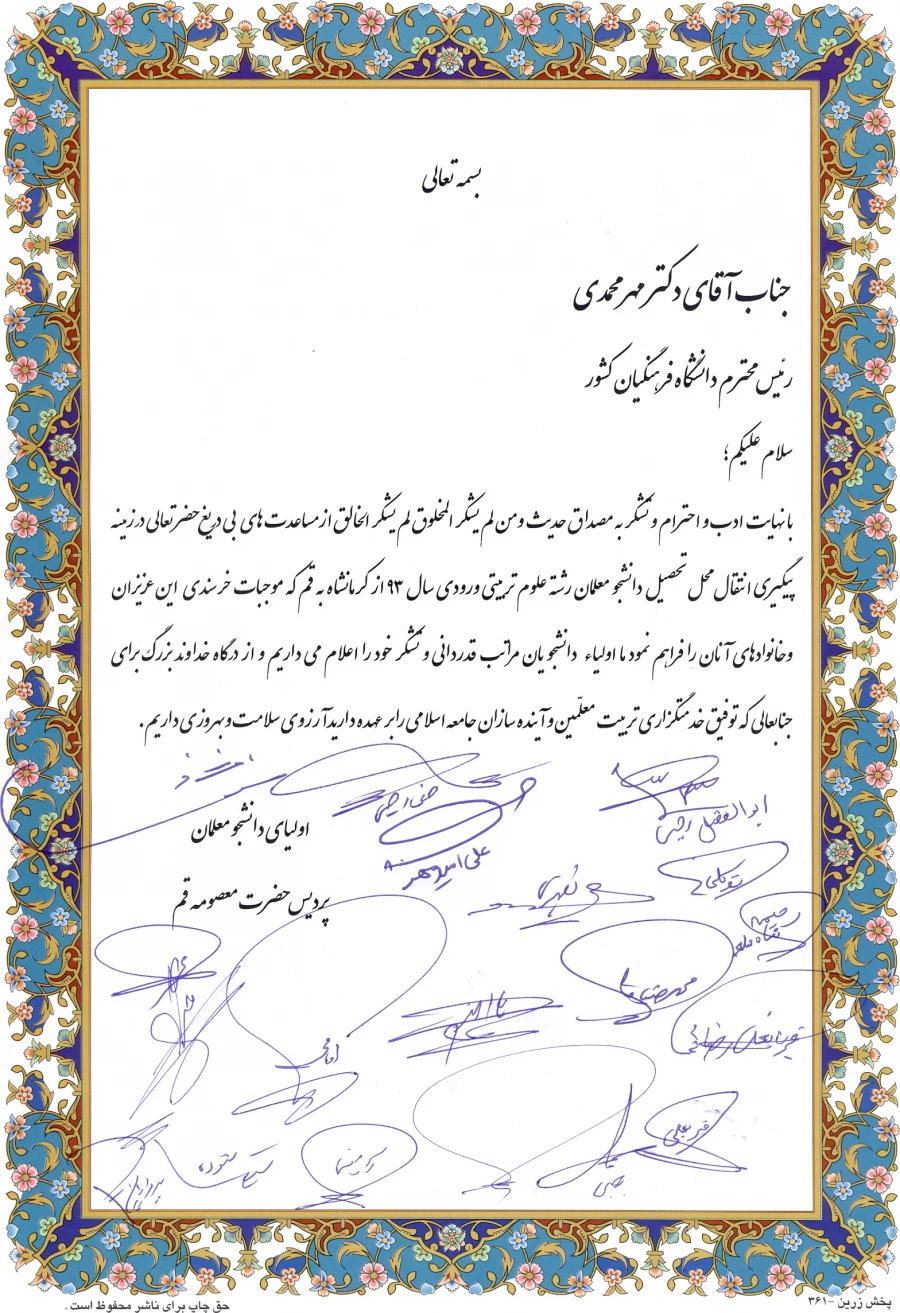 بسمه تعالی
جناب آقای دکتر مهرمحمدی
رئیس محترم دانشگاه فرهنگیان کشور
سلام علیکم؛
با نهایت ادب و احترام و تشکر به مصداق حدیث و من لم یشکر المخلوق لم یشکر الخالق از مساعدت های بی دریغ حضرتعالی در زمینه
پیگیری انتقال محل تحصیل دانشجو معلمان رشته علوم تربیتی ورودی سال ۹۳ از کرمانشاه به قم که موجبات خرسندی این عزیزان
و خانوادهای آنان را فراهم نمود ما اولیاء دانشجویان مراتب قدردانی و تشکر خود را اعلام می داریم و از درگاه خداوند بزرگ برای
جنابعالی که توفیق خدمتگزاری تربیت معلمّین و آینده سازان جامعه اسلامی را بر عهده دارید آرزوی سلامت و بهروزی داریم.
ابوالفضل رجبی
اولیای دانشجو معلمان
پردیس حضرت معصومه قم
محمدرضا
قربانعلی رضائی
امامی
قنبرعلی
ستوده
حق چاپ برای ناشر محفوظ است.
پخش زرین -۳۶۱